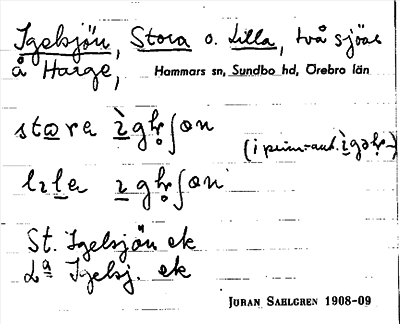 Igelsjön, Stora o. Lilla, två sjöar
å Harge, Hammars sn, Sundbo hd, Örebro län
stɷra ɩ̀gḷʃɷn
(i prim.-
lɩla ɩgḷʃɷn
St. Igelsjön ek
La Igelsj. ek
JURAN SAHLGREN 1908-09